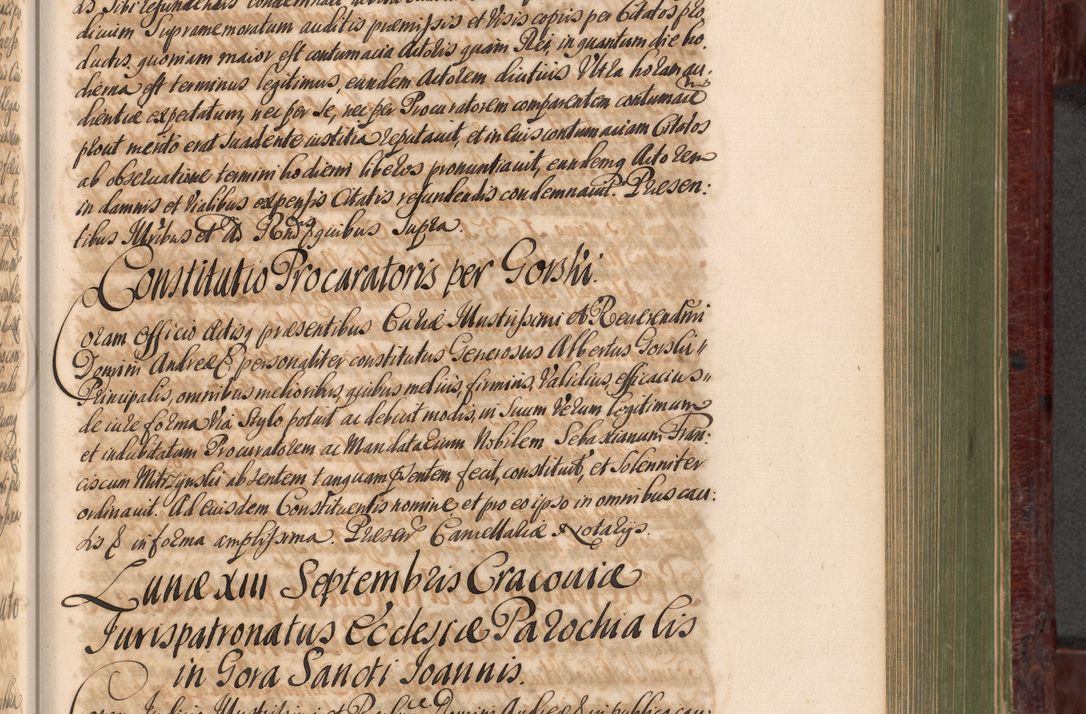 dicium Supramemoratum auditis præmissis et visis copiis per Citatos pro
ductis, quoniam maior est contumacia Actoris quam Rei, in quantum die ho.
dierna est terminus legitimus, eundem Actorem diutius Ultra horam au.
dientiæ expectatum, nec per se, nec per Procuratorem comparentem contumacem
prout merito erat suadente iustitia reputavit, et in eius contumaciam Citatos
ab observatione termini hodierni liberos pronuntiavit, eundemq Actorem
in damnis et litalibus expensis Citatis refundendis condemnavit. Presen:
tibus quibus supra.
Constitutio Procuratoris per Gorski.
Coram officio Actisq præsentibus Curiæ Illustrissimi et Reverendissimi
Domini Andreæ & personaliter constitutus Generosus Albertus Gorski
Principalis, omnibus melioribus, quibus melius, firmius, validius, efficacius
de iure forma via stylo potuit ac debuit modis, in suum verum legitimum
et indubitatum Procuratorem ac Mandatarium Nobilem Sebastianum Fran:
ciscum Mitrzynski absentem tanquam psentem fecit, constituit, et solenniter
ordinavit. Ad eiusdem Constituentis nomine, et pro eo ipso in omnibus cau:
sis & in forma amplissima. Presen Cancellariæ Notarijs.
Lunæ XIII Septembris Cracoviæ
Jurispatronatus Ecclesiæ Parochialis
in Gora Sancti Joannis.